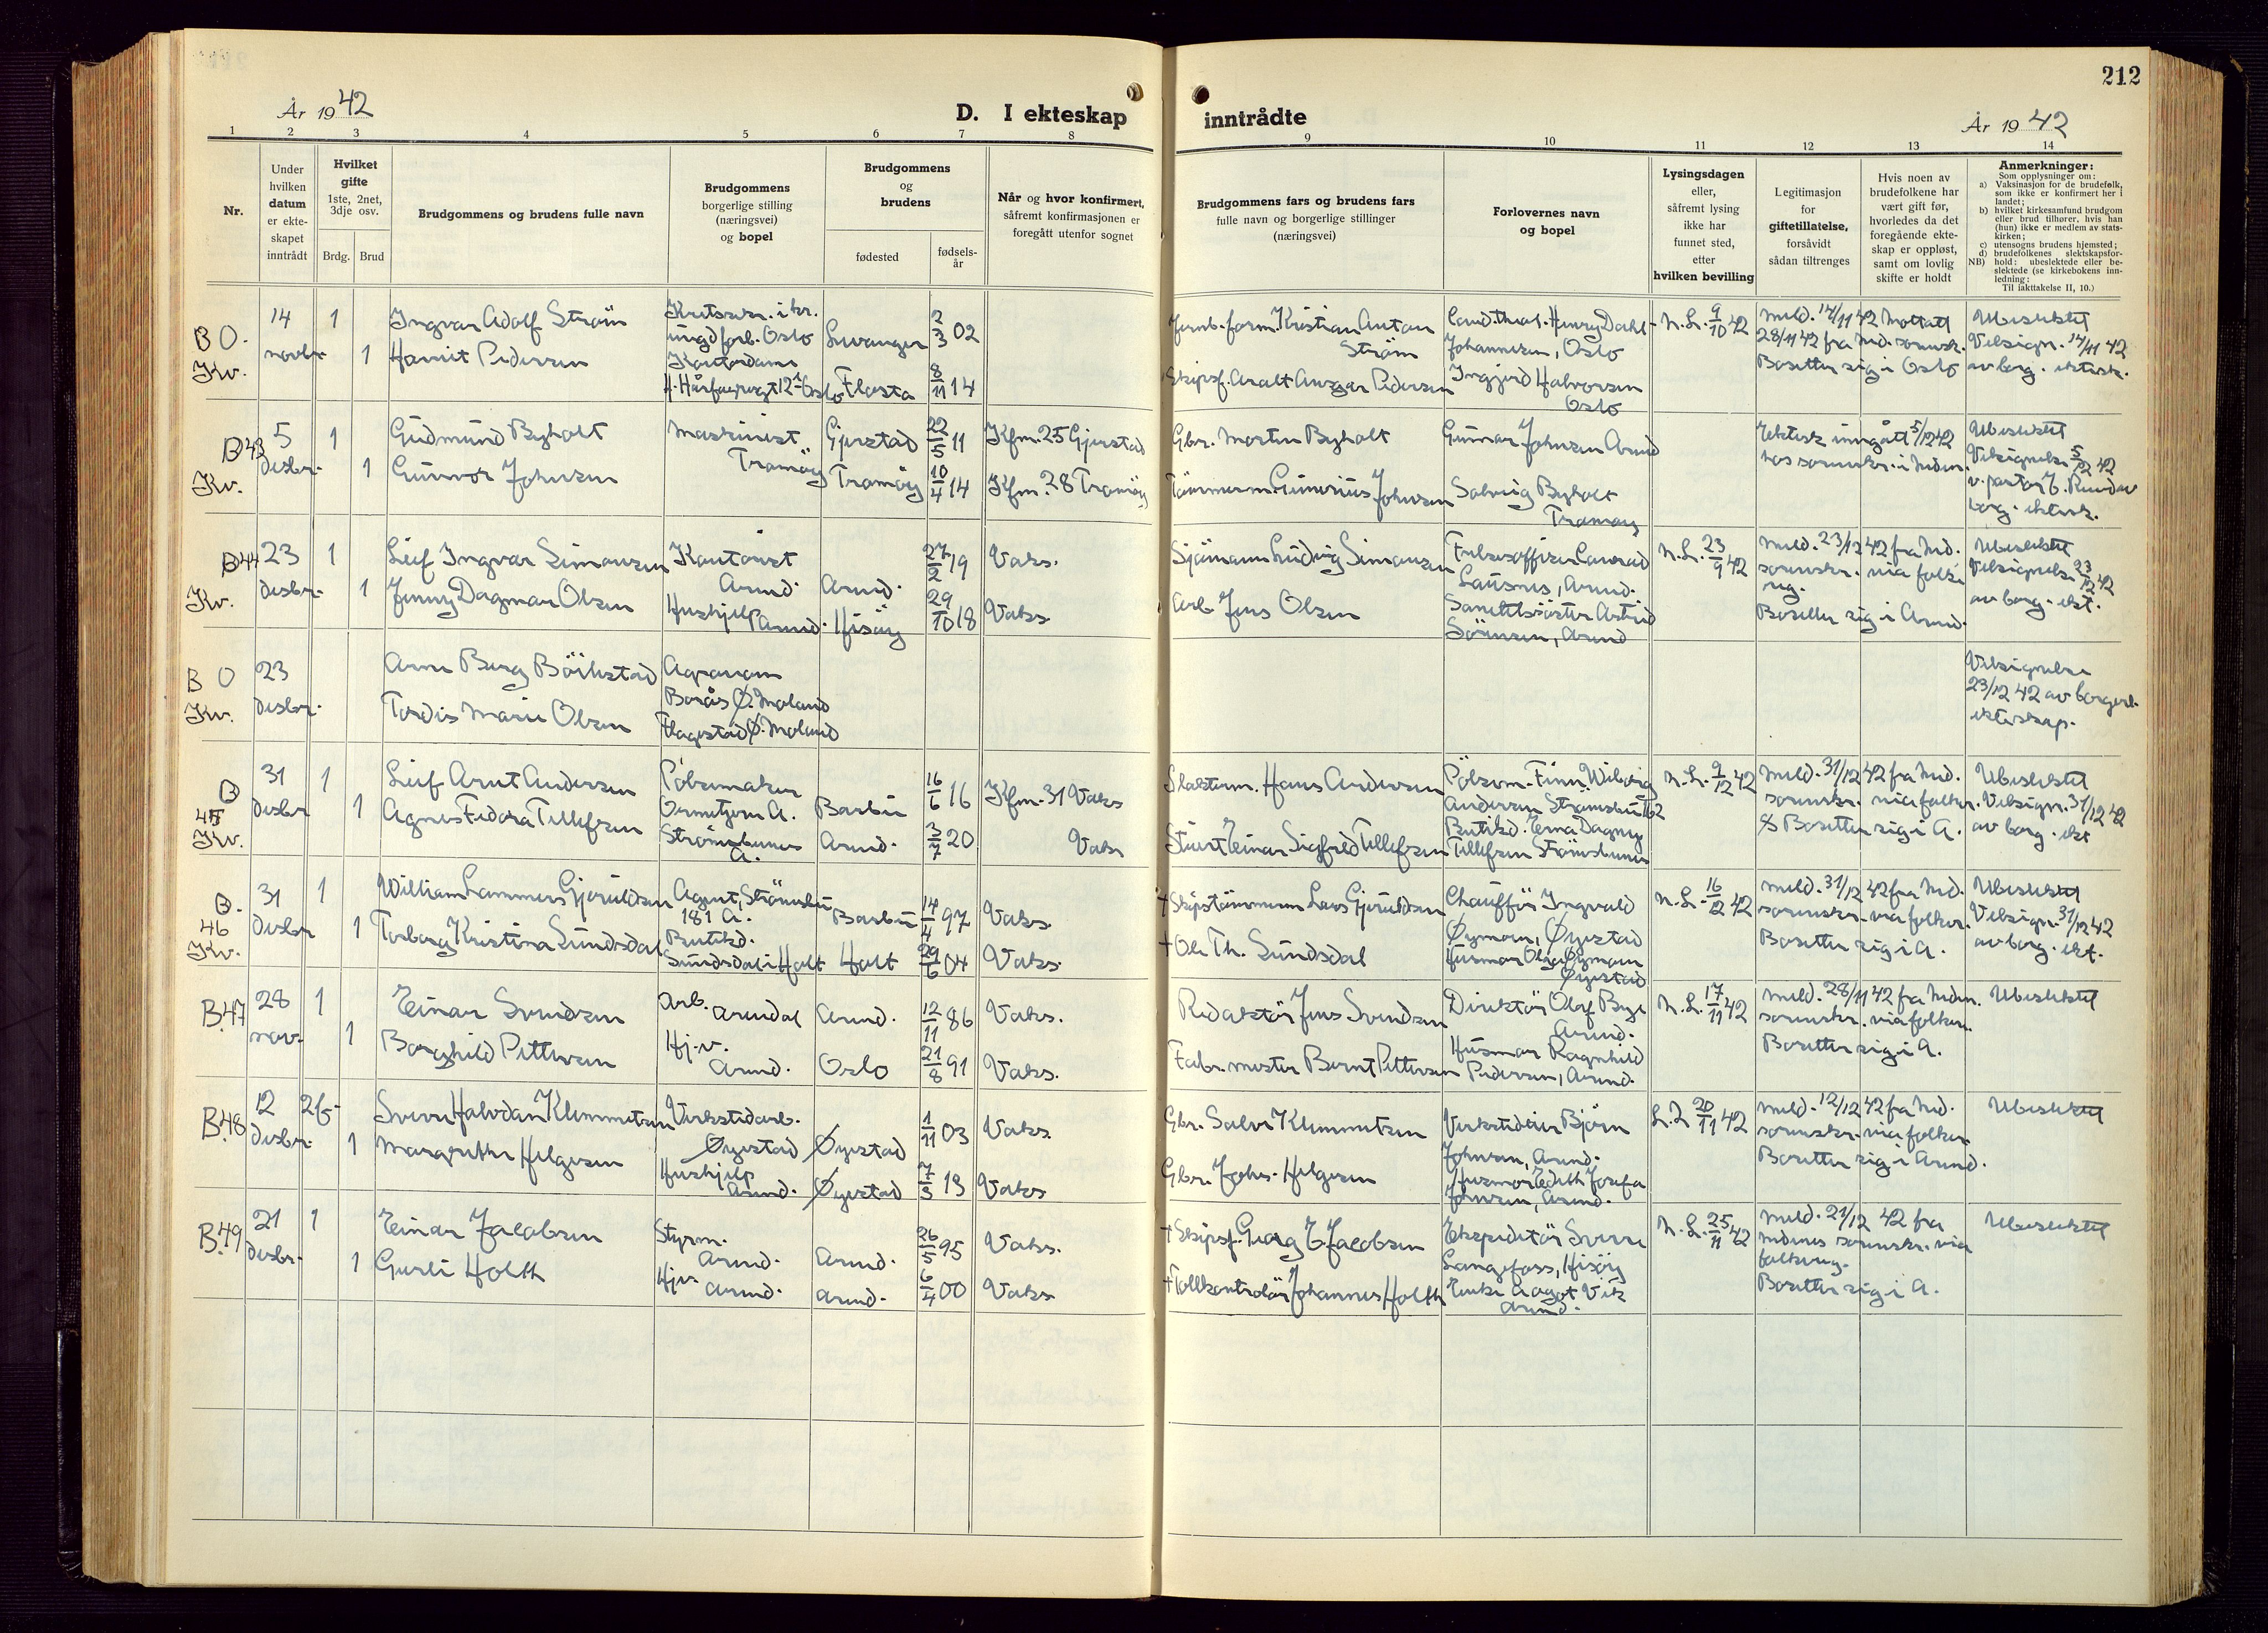 212
År 1942
D. I ekteskap inntrådte
År 1942
1 2 3 4 5 6 7 8 9 10 11 12 13 14
Nr.
Under
hvilken
datum
er ekte-
skapet
inntrådt
Hvilket
gifte
1ste, 2net,
3dje osv.
Brdg. Brud
Brudgommens og brudens fulle navn
Brudgommens
borgerlige stilling
(næringsvei)
og bopel
Brudgommens
og
brudens
fødested
fødsels-
år
Når og hvor konfirmert,
såfremt konfirmasjonen er
foregått utenfor sognet
Brudgommens fars og brudens fars
fulle navn og borgerlige stillinger
(næringsvei)
Forlovernes navn
og bopel
Lysingsdagen
eller,
såfremt lysing
ikke har
funnet sted,
etter
hvilken bevilling
Legitimasjon
for
giftetillatelse,
forsåvidt
sådan tiltrenges
Hvis noen av
brudefolkene har
vært gift før,
hvorledes da det
foregående ekte-
skap er oppløst,
samt om lovlig
skifte er holdt
Anmerkninger:
Som opplysninger om:
a) Vaksinasjon for de brudefolk,
som ikke er konfirmert her i
landet;
b) hvilket kirkesamfund brudgom
eller brud tilhører, hvis han
(hun) ikke er medlem av stats-
kirken;
c) utensogns brudens hjemsted;
d) brudefolkenes slektskapsfor-
NB) hold: ubeslektede eller be-
slektede (se kirkebokens inn-
ledning:
Til iakttakelse II, 10.)
B O.
Kv.
14
novbr.
1
1
Ingvar Adolf Strøm
Harriet Pedersen
Kretssekr. i kr.
ungd forb. Oslo
Kontordame
H. Hårfagresgt 12 Oslo
Levanger
Flosta
2/3 02
8/11 14
Jernb. form. Kristian Anton
Strøm
Skipsf. Aralt Ansgar Pedersen
Cand. theol. Henry Dahl-
Johannesen, Oslo
Ingjerd Halvorsen
Oslo
N. L. 9/10 42
Meld. 14/11 42 Mottatt
28/11 42 fra Ned. sorenskr.
Bosetter sig i Oslo
Ubeslektet
Velsign. 14/11 42
av borg. ektesk.
B 43
Kv.
5
desbr.
1
1
Gudmund Byholt
Gunvor Johnsen
Maskinist
Tromöy
Gjerstad
Tromöy
22/5 11
10/4 14
Kfm. 25 Gjerstad
Kfm. 28 Tromöy
Gbr. Morten Byholt
Tömmerm. Johnsen
Gunnar Johnsen Arend
Solveig Byholt
Tromöy
Ektesk inngått 5/12 42
hos sorenskr. i Neden.
Ubeslektet
Velsignelse 5/12 42
v. pastor
borg. ektesk.
B 44
Kv.
23
desbr.
1
1
Leif Ingvar Simonsen
Jenny Dagmar Olsen
Kontorist
Arend.
Hushjelp Arend.
Arend.
Hisöy
27/2 19
29/10 18
Vaks.
Vaks
Sjömann Ludvig Simonsen
Arb. Jens Olsen
Frelsesoffiser Conrad
Lausnes, Arend.
Samtitssöster Astrid
Sörensen, Arend
N. L. 23/9 42
Meld. 23/12 42 fra Ned.
sorenskr. via folke
reg.
Bosetter sig i Arend.
Ubeslektet
Velsignelse 23/12 42
av borg. ekt.
B O
Kv.
23
desbr.
Arne Berg Böilestad
Tordis Marie Olsen
Agronom
Borås Ø. Moland
Flagestad Ø. Moland
Velsignelse
23/12 42 av borgerl.
ekteskap.
B
45
Kv.
31
desbr
1
1
Leif Arnt Andersen
Agnes Fedora Tellefsen
Pölsemaker
Ormetjern A.
Strømsbunes
A.
Barbu
Arend.
16/6 16
3/7 20
Kfm. 31 Vaks
Vaks
Slakterm. Hans Andersen
Stuert Einar Sigfred Tellefsen
Pölsem. Finn Wilberg
Andersen Strömsbu 162
Butikd. Erna Dagny
Tellefsen Strömsbunes
N. L. 9/12 42
Meld. 31/12 42 fra Ned.
sorenskr. via folker.
Bosetter sig i A.
Ubeslektet
Velsign. 31/12 42
av borg. ekt
B.
46
Kv.
31
desbr
1
1
William Lammers Gjeruldsen
Torborg Kristina Sundsdal
Agent, Strömsbu
181 A.
Butikd.
Sundsdal i Holt
Barbu
Holt
14/4 97
29/6 04
Vaks.
Vaks.
† Skipstömmerm Lars Gjeruldsen
† Ole Th. Sundsdal
Chaufför Ingvald
Øyman, Øyestad
Husmor Olga Øyman
Øyestad
N. L. 16/12 42
Meld. 31/12 42 fra Ned.
sorenskr. via folker.
Bosetter sig i A.
Ubeslektet
Velsign. 31/12 42
av borg. ekt.
B. 47
28
nov.
1
1
Einar Svendsen
Borghild Pettersen
Arb.
Arendal
Hj.v.
Arend.
Arend.
Oslo
12/11 86
21/8 91
Vaks.
Vaks.
Redaktör Jens Svendsen
Fabr. mester Bernt Pettersen
Direktör Olaf Bye
Arend.
Husmor Ragnhild
Pedersen, Arend.
N. L. 17/11 42
Meld. 28/11 42 fra Neden.
sorenskr. via folker.
Bosetter sig i A.
Ubeslektet
B. 48
12
desbr.
1
Sverre Halvdan Klemmetsen
Margrethe Helgesen
Verkstedarb.
Øyestad
Hushjelp
Arend.
Øyestad
Øyestad
1/11 03
7/3 13
Vaks.
Vaks
Gbr. Salve Klemmetsen
Gbr. Johs. Helgesen
Verkstedeier Björn
Johnsen, Arend.
Husmor Edith Josefa
Johnsen, Arend.
20/11 42
Meld. 12/12 42 fra Ned.
sorenskr. via folker.
Bosetter sig i Arend.
Ubeslektet
B. 49
21
desbr.
1
1
Einar Jacobsen
Gurli Holth
Styrm.
Arend.
Hjv.
Arend.
Arend.
Arend.
26/5 95
6/4 00
Vaks.
Vaks
† Skipsf. Georg E. Jacobsen
† Tollkontrolör Johannes Holth
Ekspeditör Sverre
Langefoss, Hisöy
Enke Aagot Vik
Arend.
N. L. 25/11 42
Meld. 21/12 42 fra
Nedenes sorenskr. via
folkereg.
Bosetter sig i A.
Ubeslektet